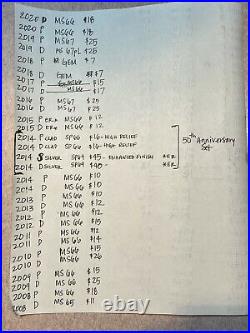 2020 D MS66 $18
2020 P MS66 $18
2019 P MS67 $25
2019 D MS 67PL $25
2018 P GEM $7
2018 D GEM $7
2017 P $15
2017 D MS66 $17
2016 P MS67 $25
2016 D MS67 $23
2015 P MS66 $12
2015 D MS66 $12
2014 P CLAD SP66 $16 - HIGH RELIEF
2014 D CLAD SP66 $16 - HIGH RELIEF
2014 S SILVER SP69 $45 - ENHANCED FINISH
2014 D SILVER SP69 $40
50th Anniversary Set
2014 P MS66 $10
2014 D MS66 $10
2013 P MS66 $10
2013 D MS66 $10
2012 P MS66 $12
2012 D MS66 $15
2011 P MS66 $12
2011 D MS66 $14
2010 P MS66 $15
2010 D MS66 $26
2009 P MS66 $15
2009 D MS66 $25
2008 P MS66 $18
2008 D MS65 $11